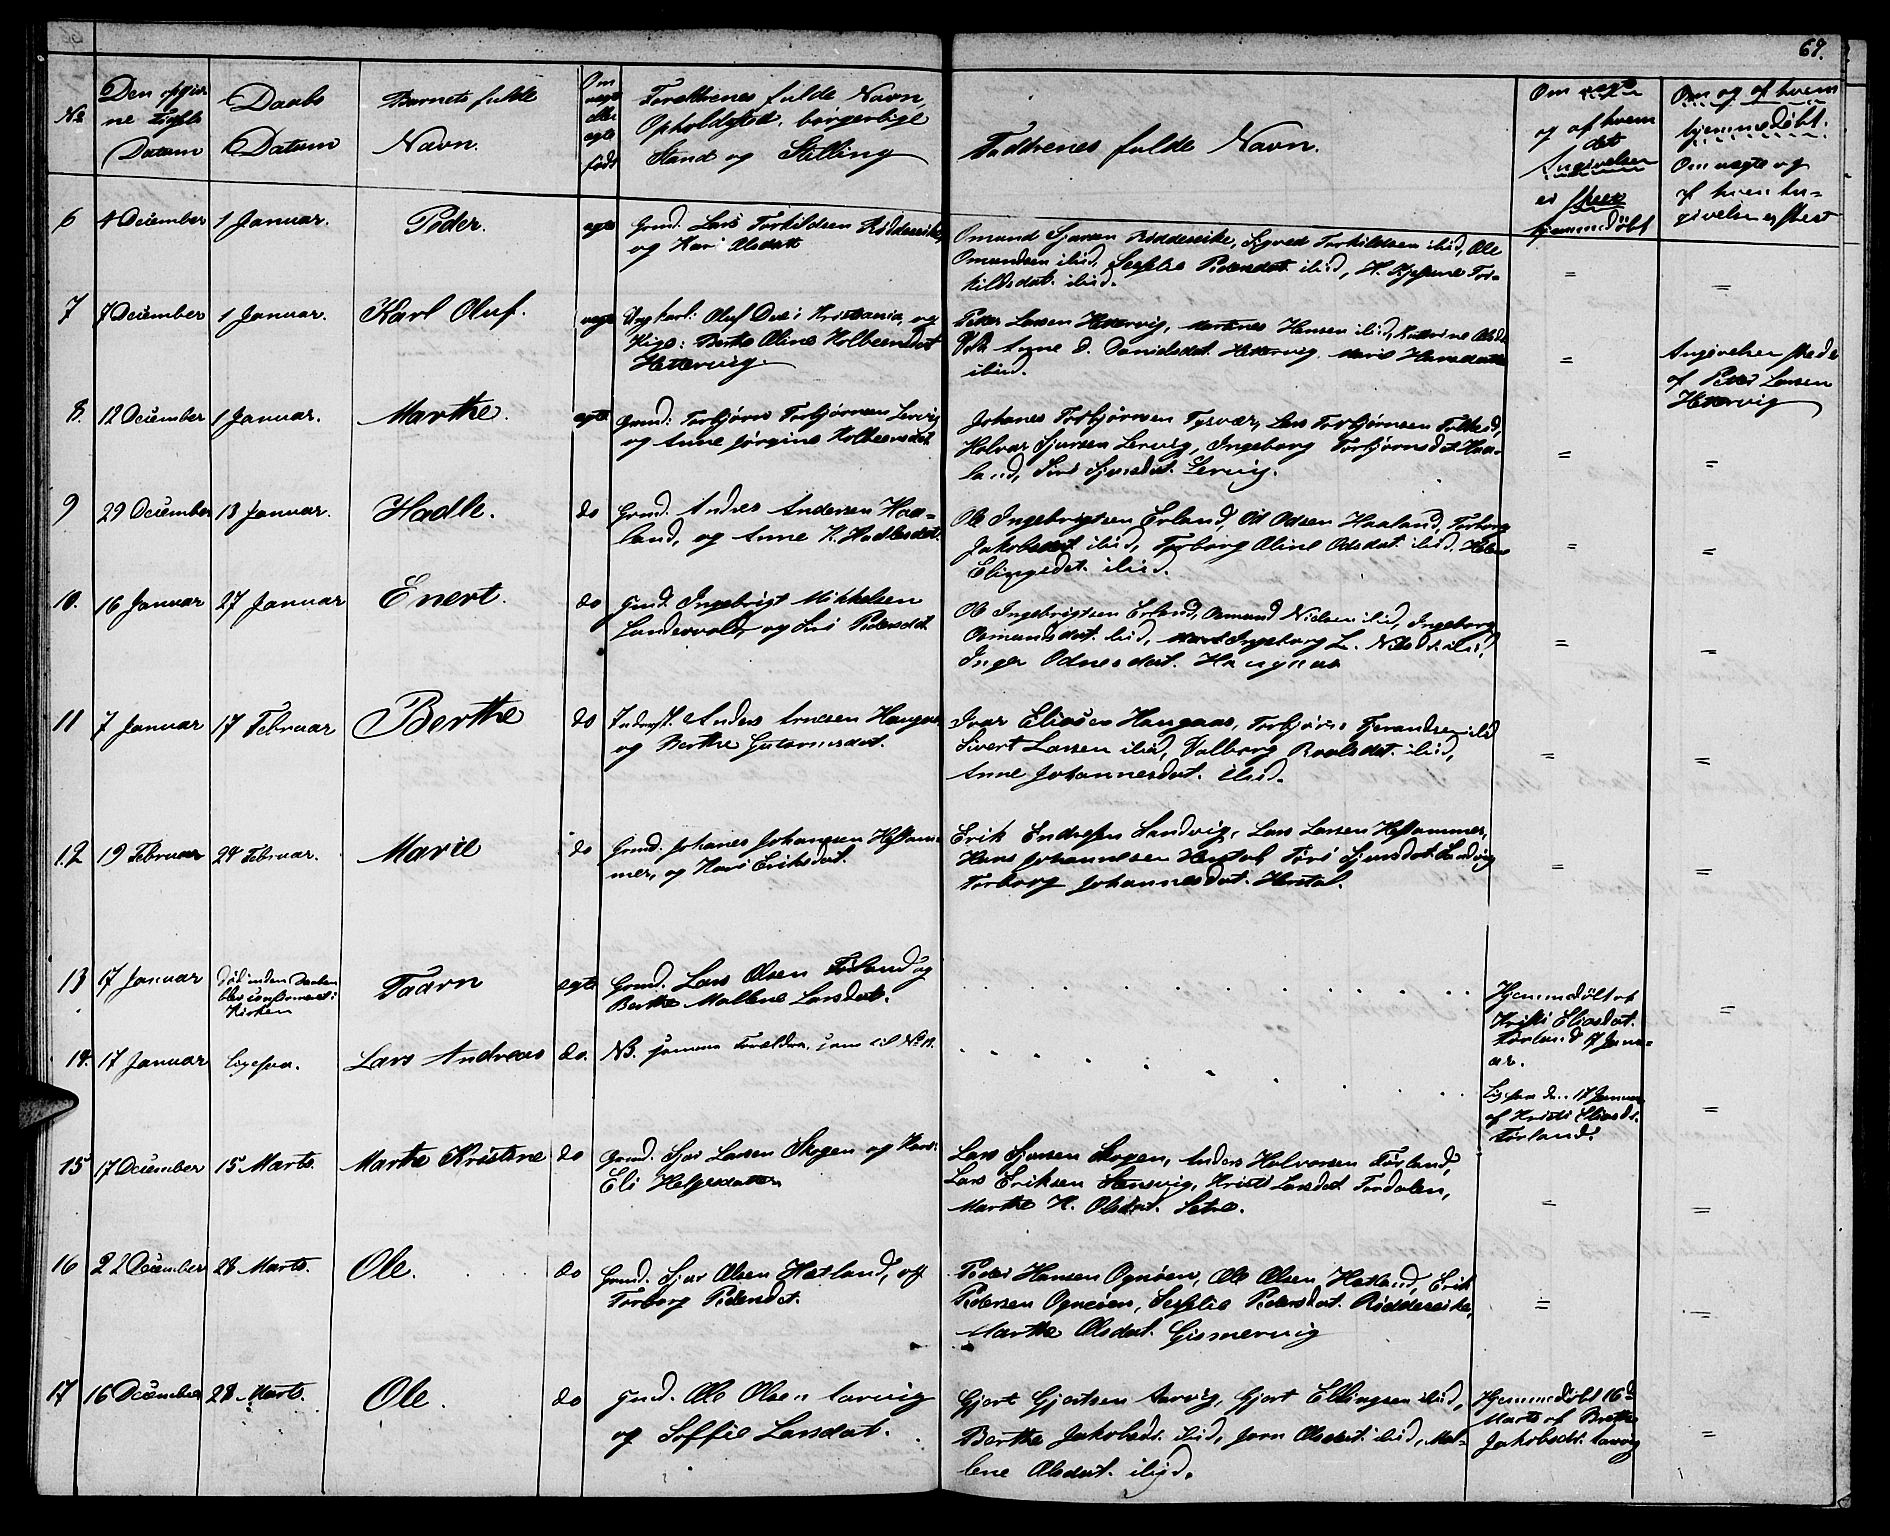 67.
No
Den opgiv
ne Føds
Datum
Daabs
Datum
Barnets fulde
Navn.
Om
uægte
eller
ægte
født
Forældrenes fulde Navn,
Opholdssted, borgerlige
Stand og Stilling
Faddrenes fulde Navn.
Om
og af hvem
det
Angivelser
er skeer
hjemmedöbt
Om og af hvem
hjemmedöbt.
Om uægte og
af hvem An-
givelsen er skeet
6 4 December 1 Januar. Peder. ægte Grmd. Lars Torkildsen Riddersvike
og Kari Olsdatt
Omund Sjursen Riddersvike, Sjoved Torkildsen ibid, Ole
Omundsen ibid, Sessilie Pedersdat. ibid, K. Torkildsdat. ibid.
= =
7 7 December 1 Januar. Karl Oluf. uægte Ungkarl: Oluf Dvei Kristiania, og
Pige: Berthe Oline Kolbeensdat
Hettervig
Peder Larsen Hettervig, Martines Hansen ibid,
Anne D. Danielsdat. Hettervig. Maris Hansdatter
ibid.
=
Angivelsen skede
af Peder Larsen
Hettervig
8. 12 December 1 Januar. Marthe. ægte Grmd: Torbjørn Torbjørnsen Lervig
og Anne Jørgine Kolbeensdat.
Johanes Torbjørnsen Tysvær, Lars Torbjørnsen
Holvar Sjursen Lervig, Ingeborg Torbjørnsdat. Haa-
land, Siri Sjursdat. Lervig.
= =
9 29 December 13 Januar. Hadle. do Grmd. Andres Andersen Haa-
land, og Anne K. Hadlesdat.
Ole Ingebrigtsen Erland, Od Odsen Haaland, Torborg
Jakobsdat ibid, Torborg Oline Odsdat. ibid. Helene
Elingsdat. ibid.
= =
10. 16 Januar 27 Januar Enert. do Grmd. Ingebrigt Mikkelsen
Søndervold, og Siri Pedersdat.
Ole Ingebrigtsen Erland, Osmund Nielsen ibid, Ingeborg
Osmundsdat. ibid, Ingeborg L. Nilsdt. ibid,
Inger Odnesdat. Haugnas
= =
11 7 Januar 17 Februar Berthe do Inderst. Anders Arnesen Hangaas
og Berthe Gutormsdat.
Ivar Eliasen Hangaas, Torbjørn Tjerandsen ibid
Sivert Larsen ibid, Valborg Roalsdat. ibid,
Anne Johannesdat. ibid.
= =
12 19 Februar 24 Februar. Marie do Grmd. Johanes Johansen Hestham-
mer, og Kari Eriksdat.
Erik Endresen Sandvig, Lars Larsen Hesthammer,
Hans Johannesen Hestal, Siri Sjursdat. Sandvig
Torborg Johannesdat. Hestal.
= =
13 17 Januar Död inden Daaben
blev confirmeret i
Kirken Taarn ægte Grmd. Lars Olsen Førland og
Berthe Mallene Larsdat.
Hjemmedöbt af
Kristi Eliasdat.
Førland 17 Janu-
ar.
=
14. 17 Januar ligesaa. Lars Andreas do. NB. samme Forældre som til No 13.
Ligesaa den 17 Januar
af Kristi Eliasdt.
Førland.
=
15 17 December 15 Marts. Marthe Kristine do Grmd. Sjur Larsen Skogen og Kari
Eli Helgesdatter
Lars Sjursen Skogen, Anders Halvorsen Førland,
Lars Eriksen Stensvig, Kristi Larsdat. Fordalen,
Marthe K. Olsdat. Setre.
= =
16 22 December 28 Marts. Ole. do Grmd. Sjur Olsen Hatland, og
Torborg Pedersdat.
Peder Hansen Ognøen, Ole Olsen Hatland, Erik
Pedersen Ognøen, Sessilie Pedersdat. Riddersvike,
Marthe Olsdat. Gismervig
= =
17 16 December 28 Marts. Ole. do Grmd. Ole Olsen Aarvig
og Soffie Larsdat.
Gjert Gjertsen Aarvig, Gjert Ellingsen ibid,
Berthe Jakobsdt. ibid, Jorn Olsdat. ibid, Mal-
lene Olsdat. ibid.
Hjemmedöbt 16de
Marts af Berthe
Jakobsdt. Aarvig
=